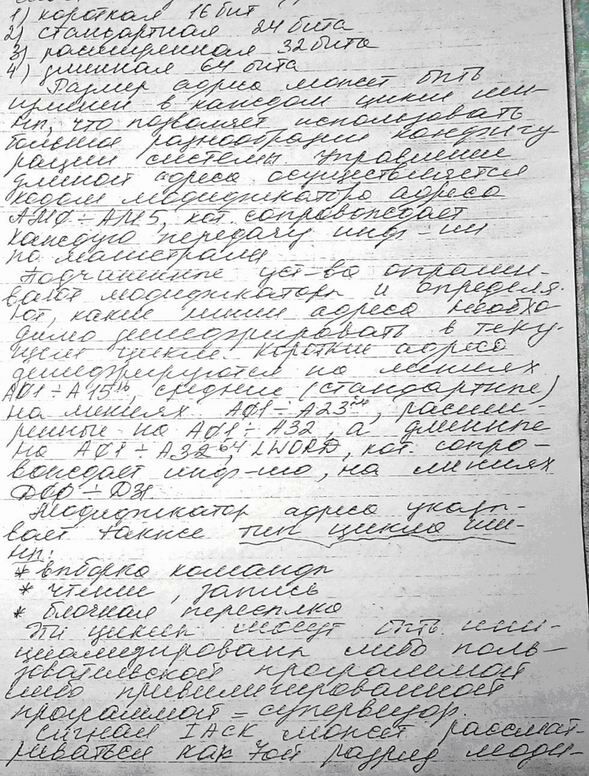 1) короткая 16 бит
2) стандартная 24 бита
3) расширенная 32 бита
4) длинная 64 бита
Размер адреса может быть
изменен в каждом цикле ши-
ны, что позволяет использовать
большое разнообразие конфигу
рации системы Управление
длиной адреса осуществляется
кодом модификатора адреса
AMØ÷AM5, кот. сопровождает
каждую передачу инф-ии
по магистрали
Подчиненные уст-ва опраши-
вают модификаторы и определя-
ют, какие линии адреса необхо
димо дешифрировать в теку-
щем цикле. Короткие адреса
дешифрируются по линиям
AØ1÷A15, средние (стандартные)
на линиях AØ1÷A23, расши-
ренные по AØ1÷A32, а длинные
по AØ1÷A32 LWORD, кот. сопро-
вождает инф-ию, на линиях
DØØ÷D31
Модификатор адреса указы-
вает также тип цикла ши-
ны:
* выборка команды
* чтение, запись
* блочная пересылка
Эти циклы могут быть ини-
циализированы либо поль-
зовательской программой
либо привилигированной
программой = супервизор.
Сигнал IACK может рассмат-
риваться как 7ой разряд моди-